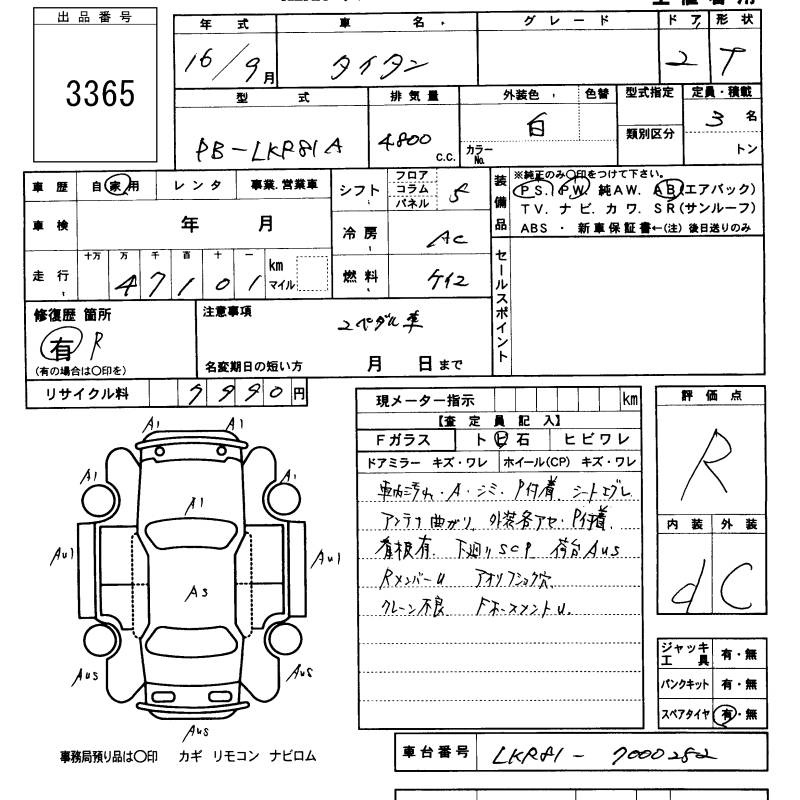 出品番号
3365
年式 車名 グレード ドア 形状
16/9月 タイタン 2 T
型式 排気量 外装色 色替 型式指定 定員・積載
PB-LKR81A 4,800 c.c. 白 カラーNo. 類別区分 3名
トン
車歴 自家用 レンタ 事業.営業車
車検 年 月
走行 十万 万 千 百 十 一
47101 km マイル
シフト フロア コラム パネル 5
冷房 AC
燃料 ケイ2
装備品
※純正のみ○印をつけて下さい。
PS. PW. 純AW. AB(エアバック)
TV. ナビ. カワ. SR(サンルーフ)
ABS ・ 新車保証書←(注) 後日送りのみ
セールスポイント
修復歴 箇所
有 R
(有の場合は○印を)
注意事項
2ペダル車
名変期日の短い方 月 日まで
リサイクル料 9990円
現メーター指示 km
【査定員記入】
Fガラス トビ石 ヒビワレ
ドアミラー キズ・ワレ ホイール(CP) キズ・ワレ
車内汚れ・A・シミ・P付着 シートエグレ
アンテナ曲がり. 外装各アセ・P付着.
看板有. 下廻りSCP 荷台AUS
RメンバーU アオリフック穴
クレーン不良 FホースメントU.
評価点
R
内装 外装
d C
A1 A1
A1 A1
A1
AU1 AU1
AS
AUS AUS
AUS
ジャッキ工具 有・無
パンクキット 有・無
スペアタイヤ 有・無
事務局預り品は○印 カギ リモコン ナビロム
車台番号 LKR81-7000252